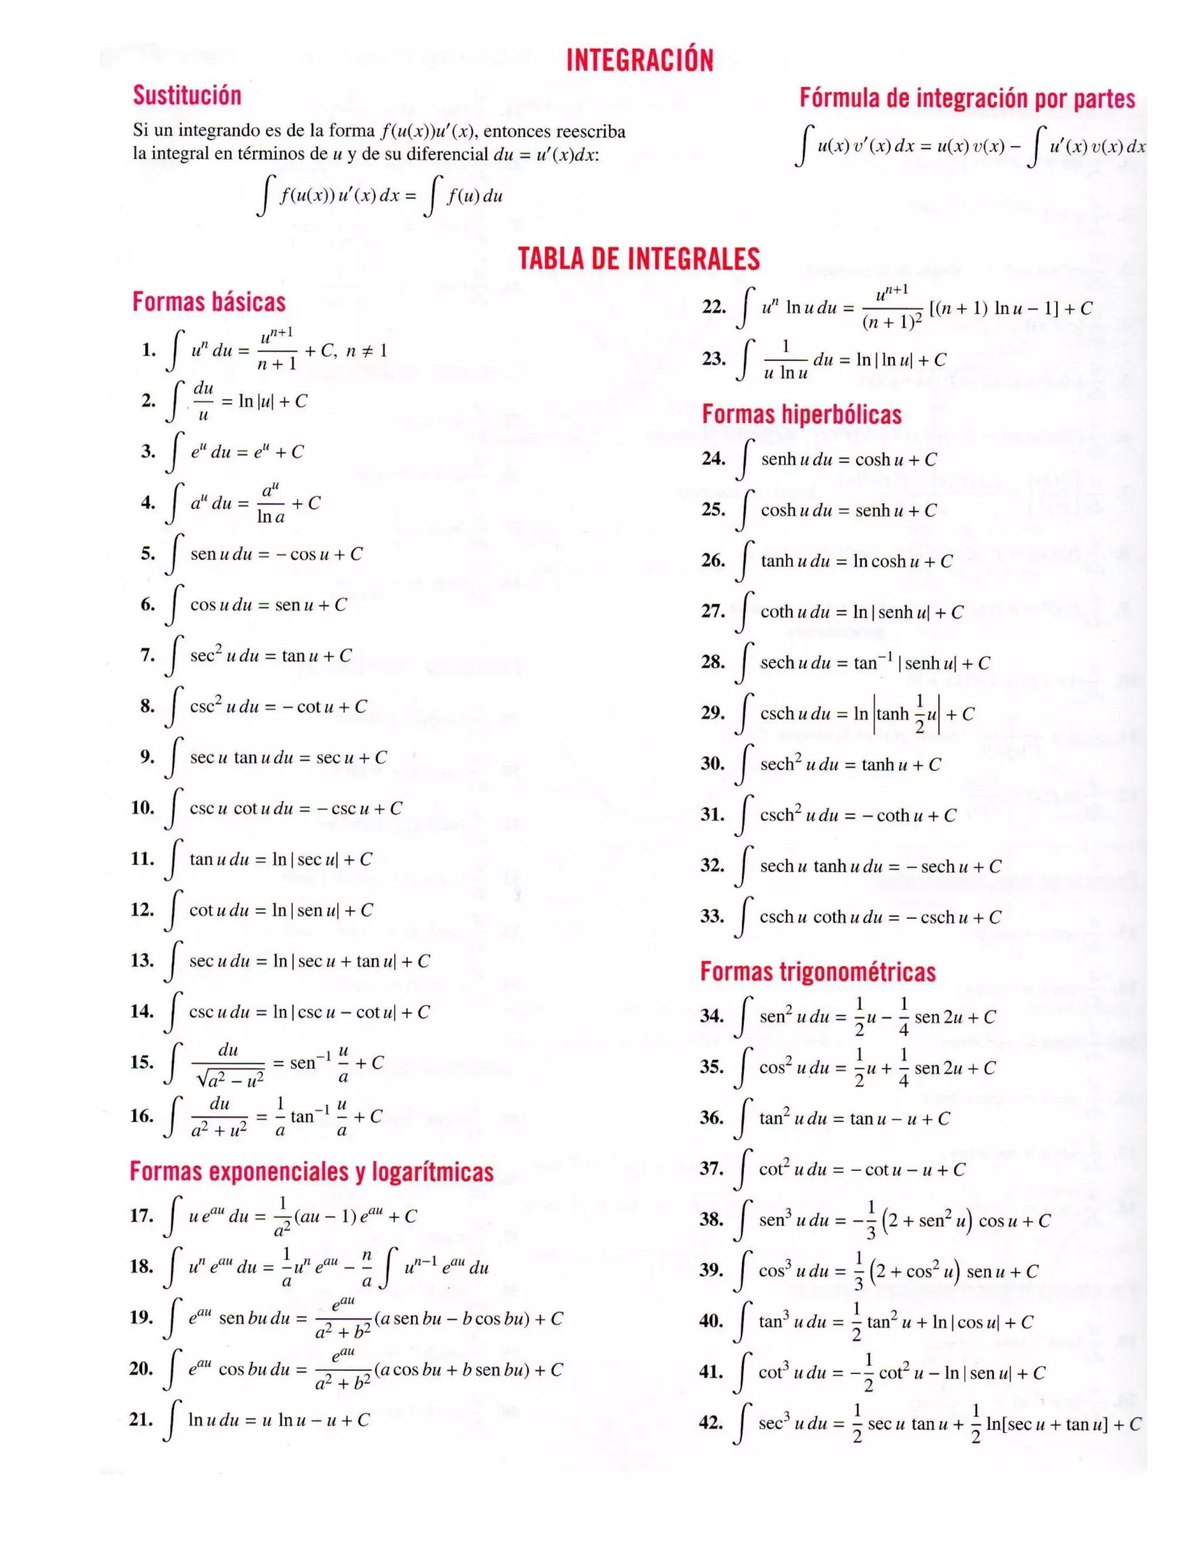 INTEGRACIÓN
Sustitución
Si un integrando es de la forma f(u(x))u′(x), entonces reescriba
la integral en términos de u y de su diferencial du = u′(x)dx:
∫ f(u(x)) u′(x) dx = ∫ f(u) du
Fórmula de integración por partes
∫ u(x) v′(x) dx = u(x) v(x) − ∫ u′(x) v(x) dx
TABLA DE INTEGRALES
Formas básicas
1. ∫ uⁿ du = uⁿ⁺¹/(n + 1) + C, n ≠ 1
2. ∫ du/u = ln |u| + C
3. ∫ eᵘ du = eᵘ + C
4. ∫ aᵘ du = aᵘ/ln a + C
5. ∫ sen u du = − cos u + C
6. ∫ cos u du = sen u + C
7. ∫ sec² u du = tan u + C
8. ∫ csc² u du = − cot u + C
9. ∫ sec u tan u du = sec u + C
10. ∫ csc u cot u du = − csc u + C
11. ∫ tan u du = ln | sec u| + C
12. ∫ cot u du = ln | sen u| + C
13. ∫ sec u du = ln | sec u + tan u| + C
14. ∫ csc u du = ln | csc u − cot u| + C
15. ∫ du/√(a² − u²) = sen⁻¹ u/a + C
16. ∫ du/(a² + u²) = 1/a tan⁻¹ u/a + C
Formas exponenciales y logarítmicas
17. ∫ u eᵃᵘ du = 1/a² (au − 1) eᵃᵘ + C
18. ∫ uⁿ eᵃᵘ du = 1/a uⁿ eᵃᵘ − n/a ∫ uⁿ⁻¹ eᵃᵘ du
19. ∫ eᵃᵘ sen bu du = eᵃᵘ/(a² + b²) (a sen bu − b cos bu) + C
20. ∫ eᵃᵘ cos bu du = eᵃᵘ/(a² + b²) (a cos bu + b sen bu) + C
21. ∫ ln u du = u ln u − u + C
22. ∫ uⁿ ln u du = uⁿ⁺¹/(n + 1)² [(n + 1) ln u − 1] + C
23. ∫ 1/(u ln u) du = ln | ln u| + C
Formas hiperbólicas
24. ∫ senh u du = cosh u + C
25. ∫ cosh u du = senh u + C
26. ∫ tanh u du = ln cosh u + C
27. ∫ coth u du = ln | senh u| + C
28. ∫ sech u du = tan⁻¹ | senh u| + C
29. ∫ csch u du = ln |tanh 1/2 u| + C
30. ∫ sech² u du = tanh u + C
31. ∫ csch² u du = − coth u + C
32. ∫ sech u tanh u du = − sech u + C
33. ∫ csch u coth u du = − csch u + C
Formas trigonométricas
34. ∫ sen² u du = 1/2 u − 1/4 sen 2u + C
35. ∫ cos² u du = 1/2 u + 1/4 sen 2u + C
36. ∫ tan² u du = tan u − u + C
37. ∫ cot² u du = − cot u − u + C
38. ∫ sen³ u du = − 1/3 (2 + sen² u) cos u + C
39. ∫ cos³ u du = 1/3 (2 + cos² u) sen u + C
40. ∫ tan³ u du = 1/2 tan² u + ln | cos u| + C
41. ∫ cot³ u du = − 1/2 cot² u − ln | sen u| + C
42. ∫ sec³ u du = 1/2 sec u tan u + 1/2 ln[sec u + tan u] + C